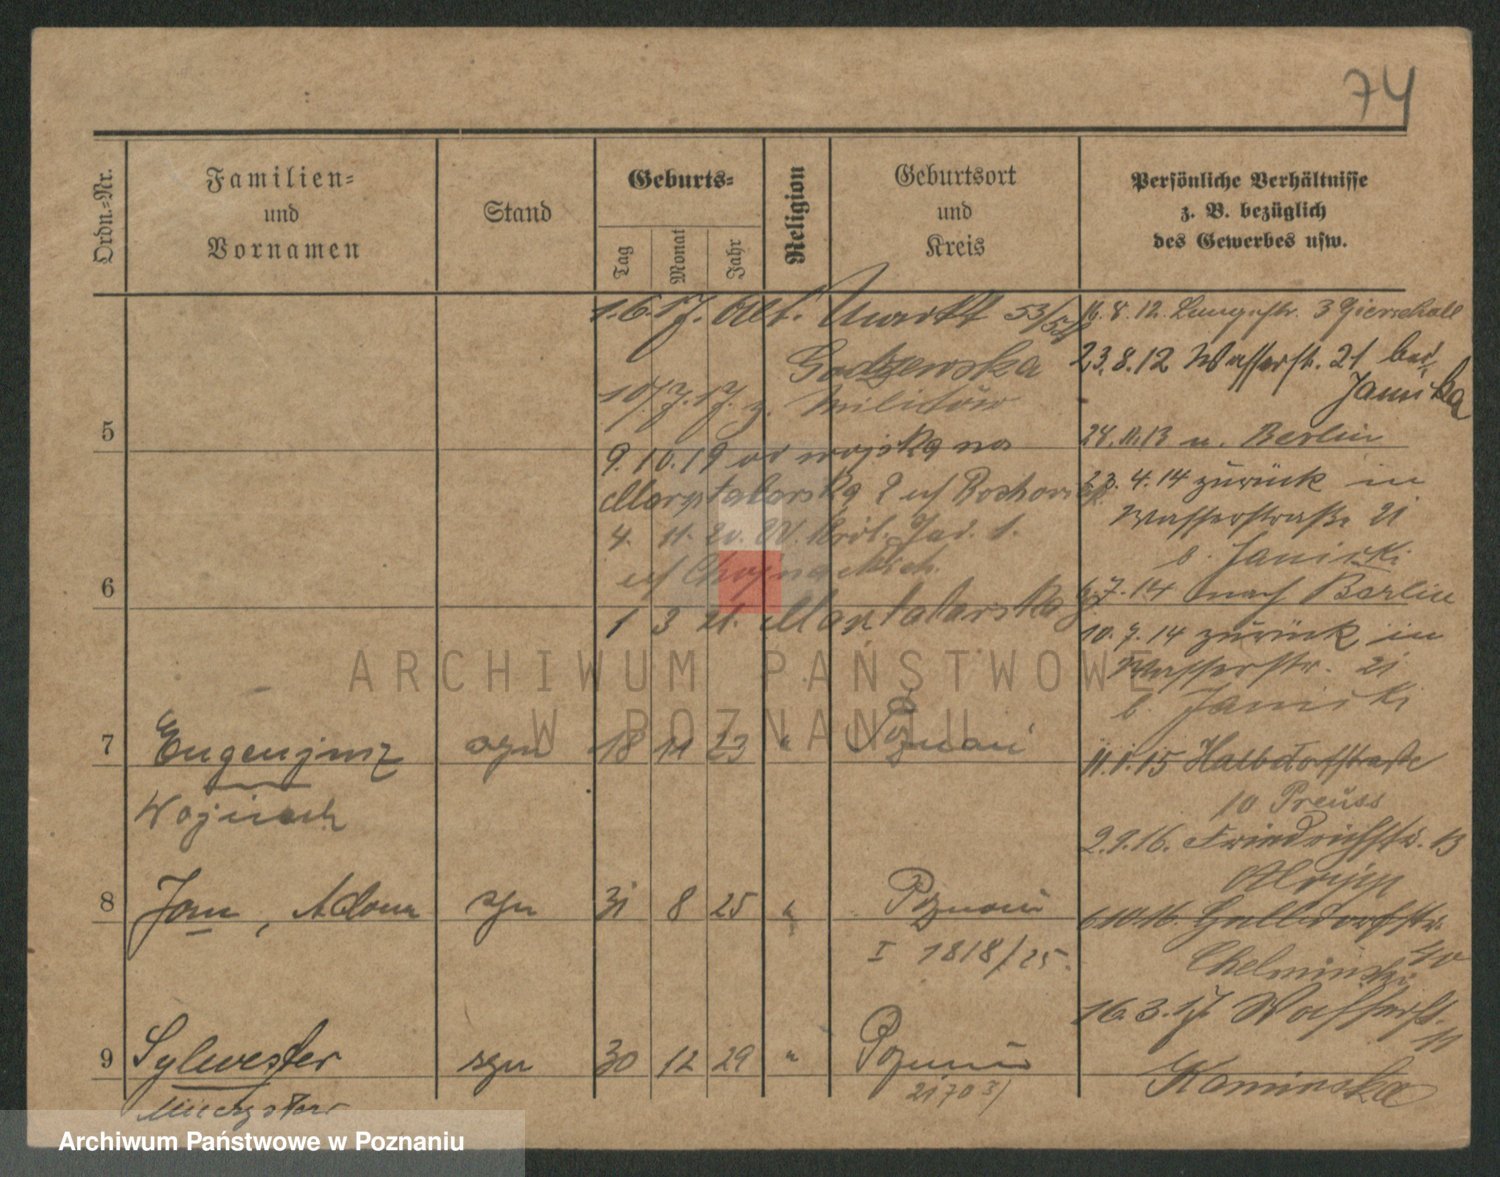 74
Ordn.-Nr.
Familien-
und
Vornamen
Stand
Geburts-
Tag
Monat
Jahr
Religion
Geburtsort
und
Kreis
Persönliche Verhältnisse
z. B. bezüglich
des Gewerbes usw.
1.6.17. Alt. Markt 53/54
10/7.17. z. Militär
9.10.19 od wojska na
Masztalarska 2 u/
4. 11. 20. W. Król. Jad. 1.
u/
1 3 21. Masztalarska
16.8.12. Langestr. 3 Gierschall
23.8.12 Wasserst. 21 bei
Janicka
24.11.13 n. Berlin
23.4.14 zurück in
Wasserstraße 21
b. Janicki
6.7.14 nach Berlin
10.9.14 zurück in
Wasserstr. 21
b. Janicki
11.1.15 Halbdorfstraße
10 Preuss
2.9.16. Friedrichstr. 13
6.10.16. Halbdorfstr.
40
Chelminski
16.3.17. Wasserst.
11
Kaminska
5
6
7 Eugenjusz syn 18 11 23 " Poznań
Wojciech
8 Jan, Adam syn 31 8 25 " Poznań
I 1818/25.
9 Sylwester syn 30 12 29 " Poznań
Mieczysław 2170
ARCHIWUM PAŃSTWOWE
W POZNANIU
Archiwum Państwowe w Poznaniu